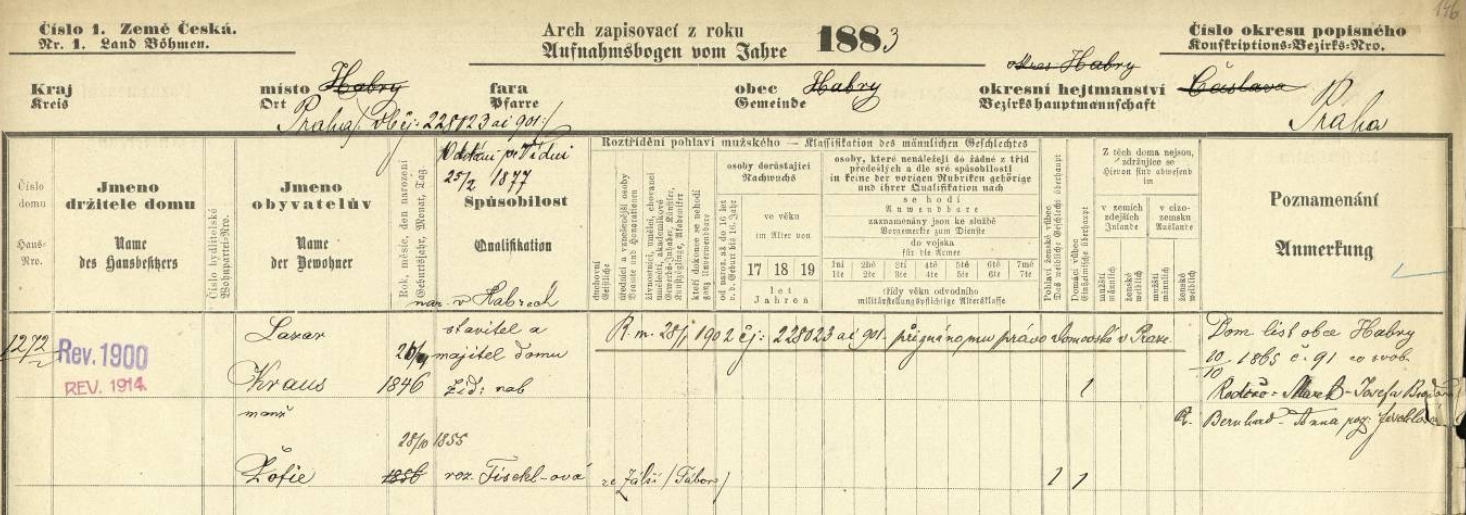 146
Číslo 1. Země Česká.
Nr. 1. Land Böhmen.
Arch zapisovací z roku
Aufnahmsbogen vom Jahre
1883
Číslo okresu popisného
Konskriptions-Bezirks-Nro.
Kraj
Kreis
místo Habry
Ort
Praha /: čj: 228023 ai 901:/
fara
Pfarre
obec Habry
Gemeinde
okres Habry
okresní hejtmanství Čáslava
Bezirkshauptmannschaft
Praha
Číslo domu
Haus-Nro.
Jmeno
držitele domu
Name
des Hausbesitzers
Číslo bydlitelské
Wohnpartei-Nro.
Jmeno
obyvatelův
Name
der Bewohner
Rok, měsíc, den narození
Geburtsjahr, Monat, Tag
Oddáni ve Vídni
25/2 1877
Spůsobilost
Qualifikation
nar. v Habrech
Roztřídění pohlaví mužského — Klassifikation des männlichen Geschlechtes
duchovní
Geistliche
úředníci a vznešenější osoby
Beamte und Honoratioren
živnostníci, umělci, chovanci
umělečtí, akademikové
kteří dokonce se nehodí
ganz Unverwendbare
osoby dorůstající
Nachwuchs
od naroz. až do 16 let
v. d. Geburt bis 16. Jahr
ve věku
im Alter von
17 18 19
let
Jahren
osoby, které nenáležejí do žádné z tříd
předešlých a dle své spůsobilosti
in keine der vorigen Rubriken gehörige
und ihrer Qualifikation nach
se hodí
Anwendbare
zaznamenány jsou ke službě
Vorgemerkte zum Dienste
do vojska
für die Armee
1ní 2hé 3tí 4té 5té 6té 7mé
1te 2te 3te 4te 5te 6te 7te
třídy věku odvodního
militärstellungspflichtige Altersklasse
Pohlaví ženské vůbec
Das weibliche Geschlecht überhaupt
Domácí vůbec
Einheimische überhaupt
Z těch doma nejsou,
zdržujíce se
Hievon sind abwesend
im
v zemích
zdejších
Inlande
v cizo-
zemsku
Auslande
mužští
männlich
ženské
weiblich
mužští
männlich
ženské
weiblich
Poznamenání
Anmerkung
1272
Rev. 1900
REV. 1914.
Lazar
Kraus
1846
stavitel a
majitel domu
žid: nab
R. m. 28/1 1902 čj: 228023 ai 901. přiznáno mu právo domovské v Praze.
1
Dom. list obce Habry
10/10 1865 č. 91 co svob.
Rodiče: Marek - Josefa
R. Bernhard - Anna
manž
28/10 1855
Žofie
1856
roz. Fischl-ová
ze Zálší (Tábor)
1 1